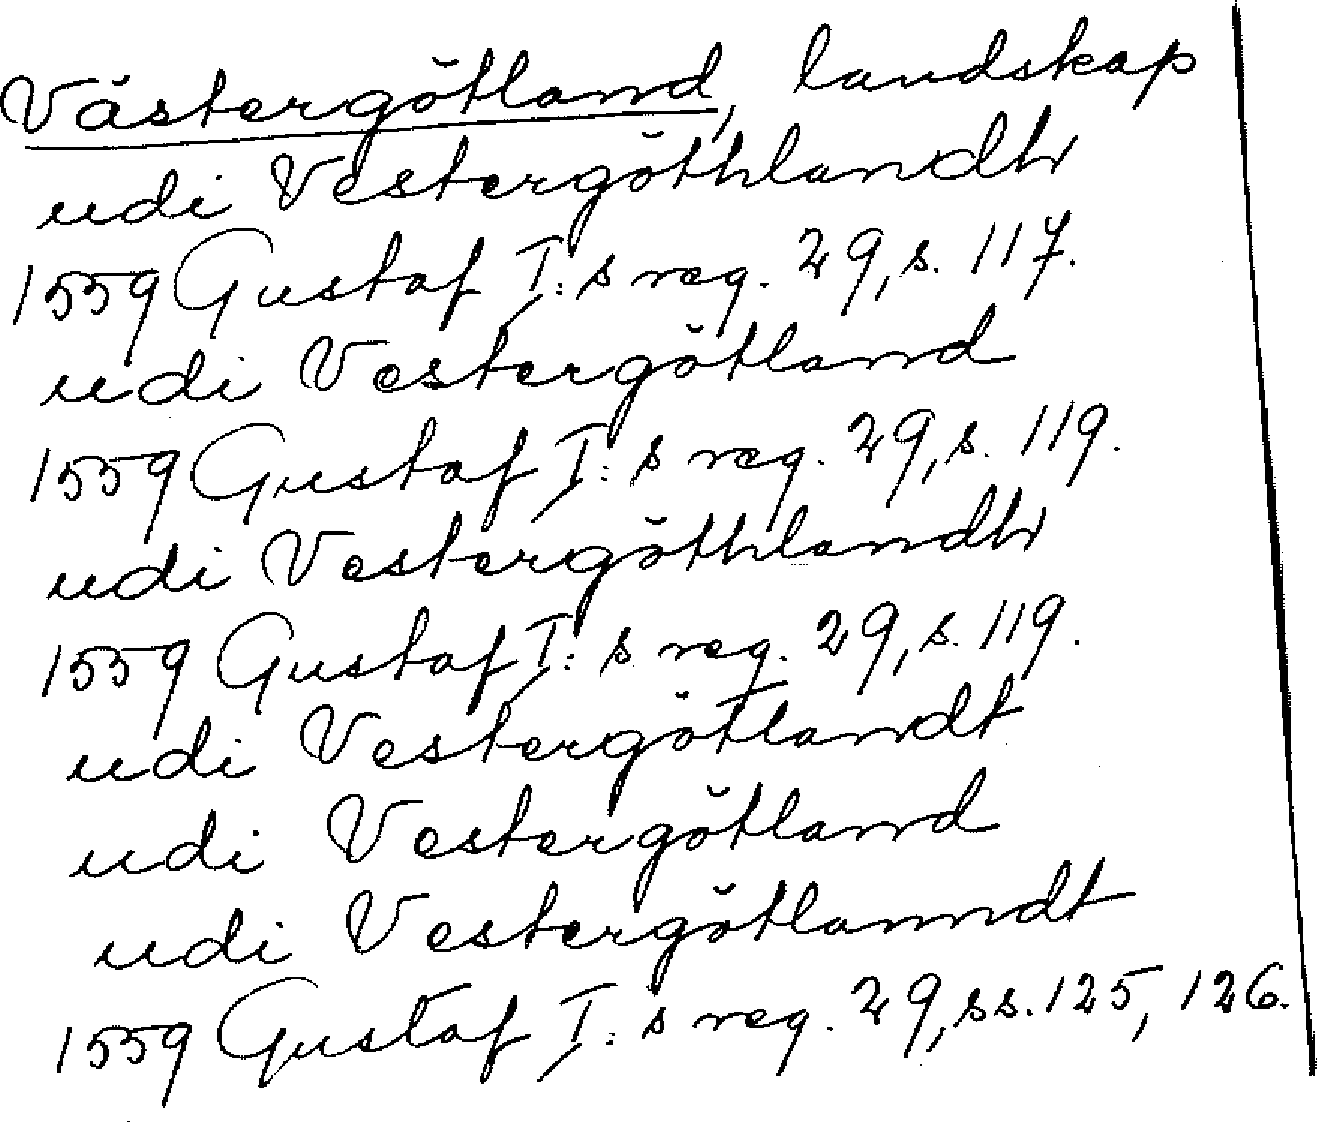 Västergötland, landskap
udi Vestergöthlandh
1559 Gustaf I:s reg. 29, s. 117.
udi Vestergötland
1559 Gustaf I:s reg. 29, s. 119.
udi Vestergöthlandh
1559 Gustaf I:s reg. 29, s. 119.
udi Vestergötlandt
udi Vestergötland
udi Vestergötlanndt
1559 Gustaf I:s reg. 29, ss. 125, 126.